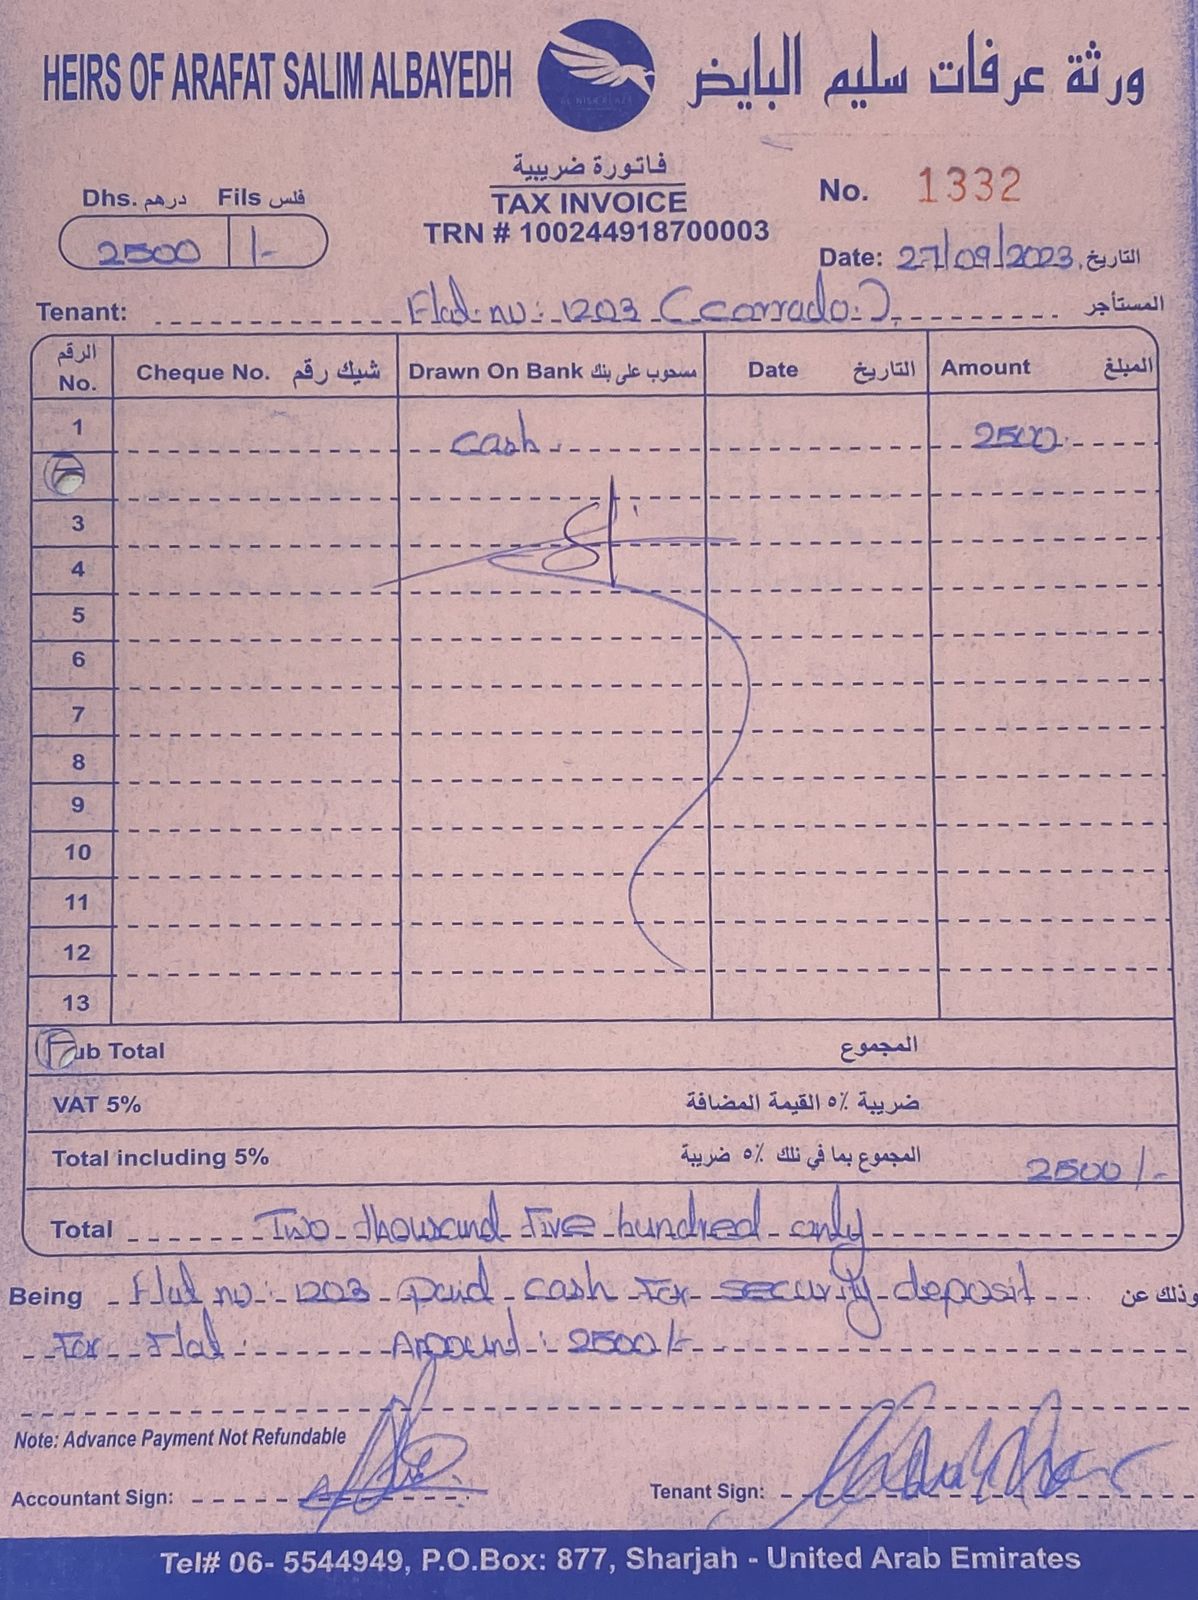 HEIRS OF ARAFAT SALIM ALBAYEDH ورثة عرفات سليم البايض
فاتورة ضريبية
TAX INVOICE
TRN # 100244918700003
Dhs. درهم Fils فلس
2500 /-
No. 1332
Date: 27/09/2023 التاريخ
Tenant: Flat no: 1203 (corrado) المستأجر
الرقم No. Cheque No. شيك رقم Drawn On Bank مسحوب على بنك Date التاريخ Amount المبلغ
1 cash. 2500
3
4
5
6
7
8
9
10
11
12
13
ub Total المجموع
VAT 5% ضريبة ٥٪ القيمة المضافة
Total including 5% المجموع بما في ذلك ٥٪ ضريبة 2500/-
Total Two thousand Five hundred only
Being Flat no: 1203 paid cash For security deposit وذلك عن
For Flat. Amount: 2500/-
Note: Advance Payment Not Refundable
Accountant Sign: Tenant Sign:
Tel# 06- 5544949, P.O.Box: 877, Sharjah - United Arab Emirates